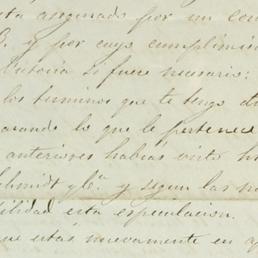 sta asegurado por un cen
y por cuyo cumplimie
si fuere necesario:
los terminos que te tengo di
arando lo que le pertenece
anteriores habias visto h
chmidt y Ca. y segun las no
ilidad esta especulacion.
ue estás nuevamente en ap